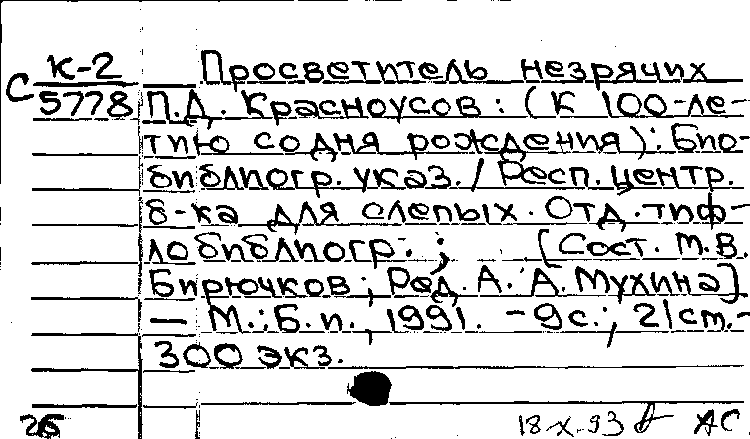 К-2 Просветитель незрячих
С 5778 П.Д. Красноусов: (К 100-ле-
тию со дня рождения): Био-
библиогр. указ. / Респ. центр.
б-ка для слепых. Отд. тиф-
лобиблиогр.; [Сост. М.В.
Бирючков; Ред. А. А. Мухина].
— М.: Б.и., 1991. - 9 с.; 21 см.-
300 экз.
18-X-93 АС